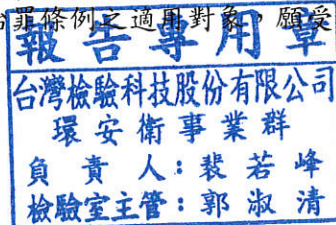 治罪條例之適用對象，願受
報告專用章
台灣檢驗科技股份有限公司
環安衛事業群
負責人：裴若峰
檢驗室主管：郭淑清